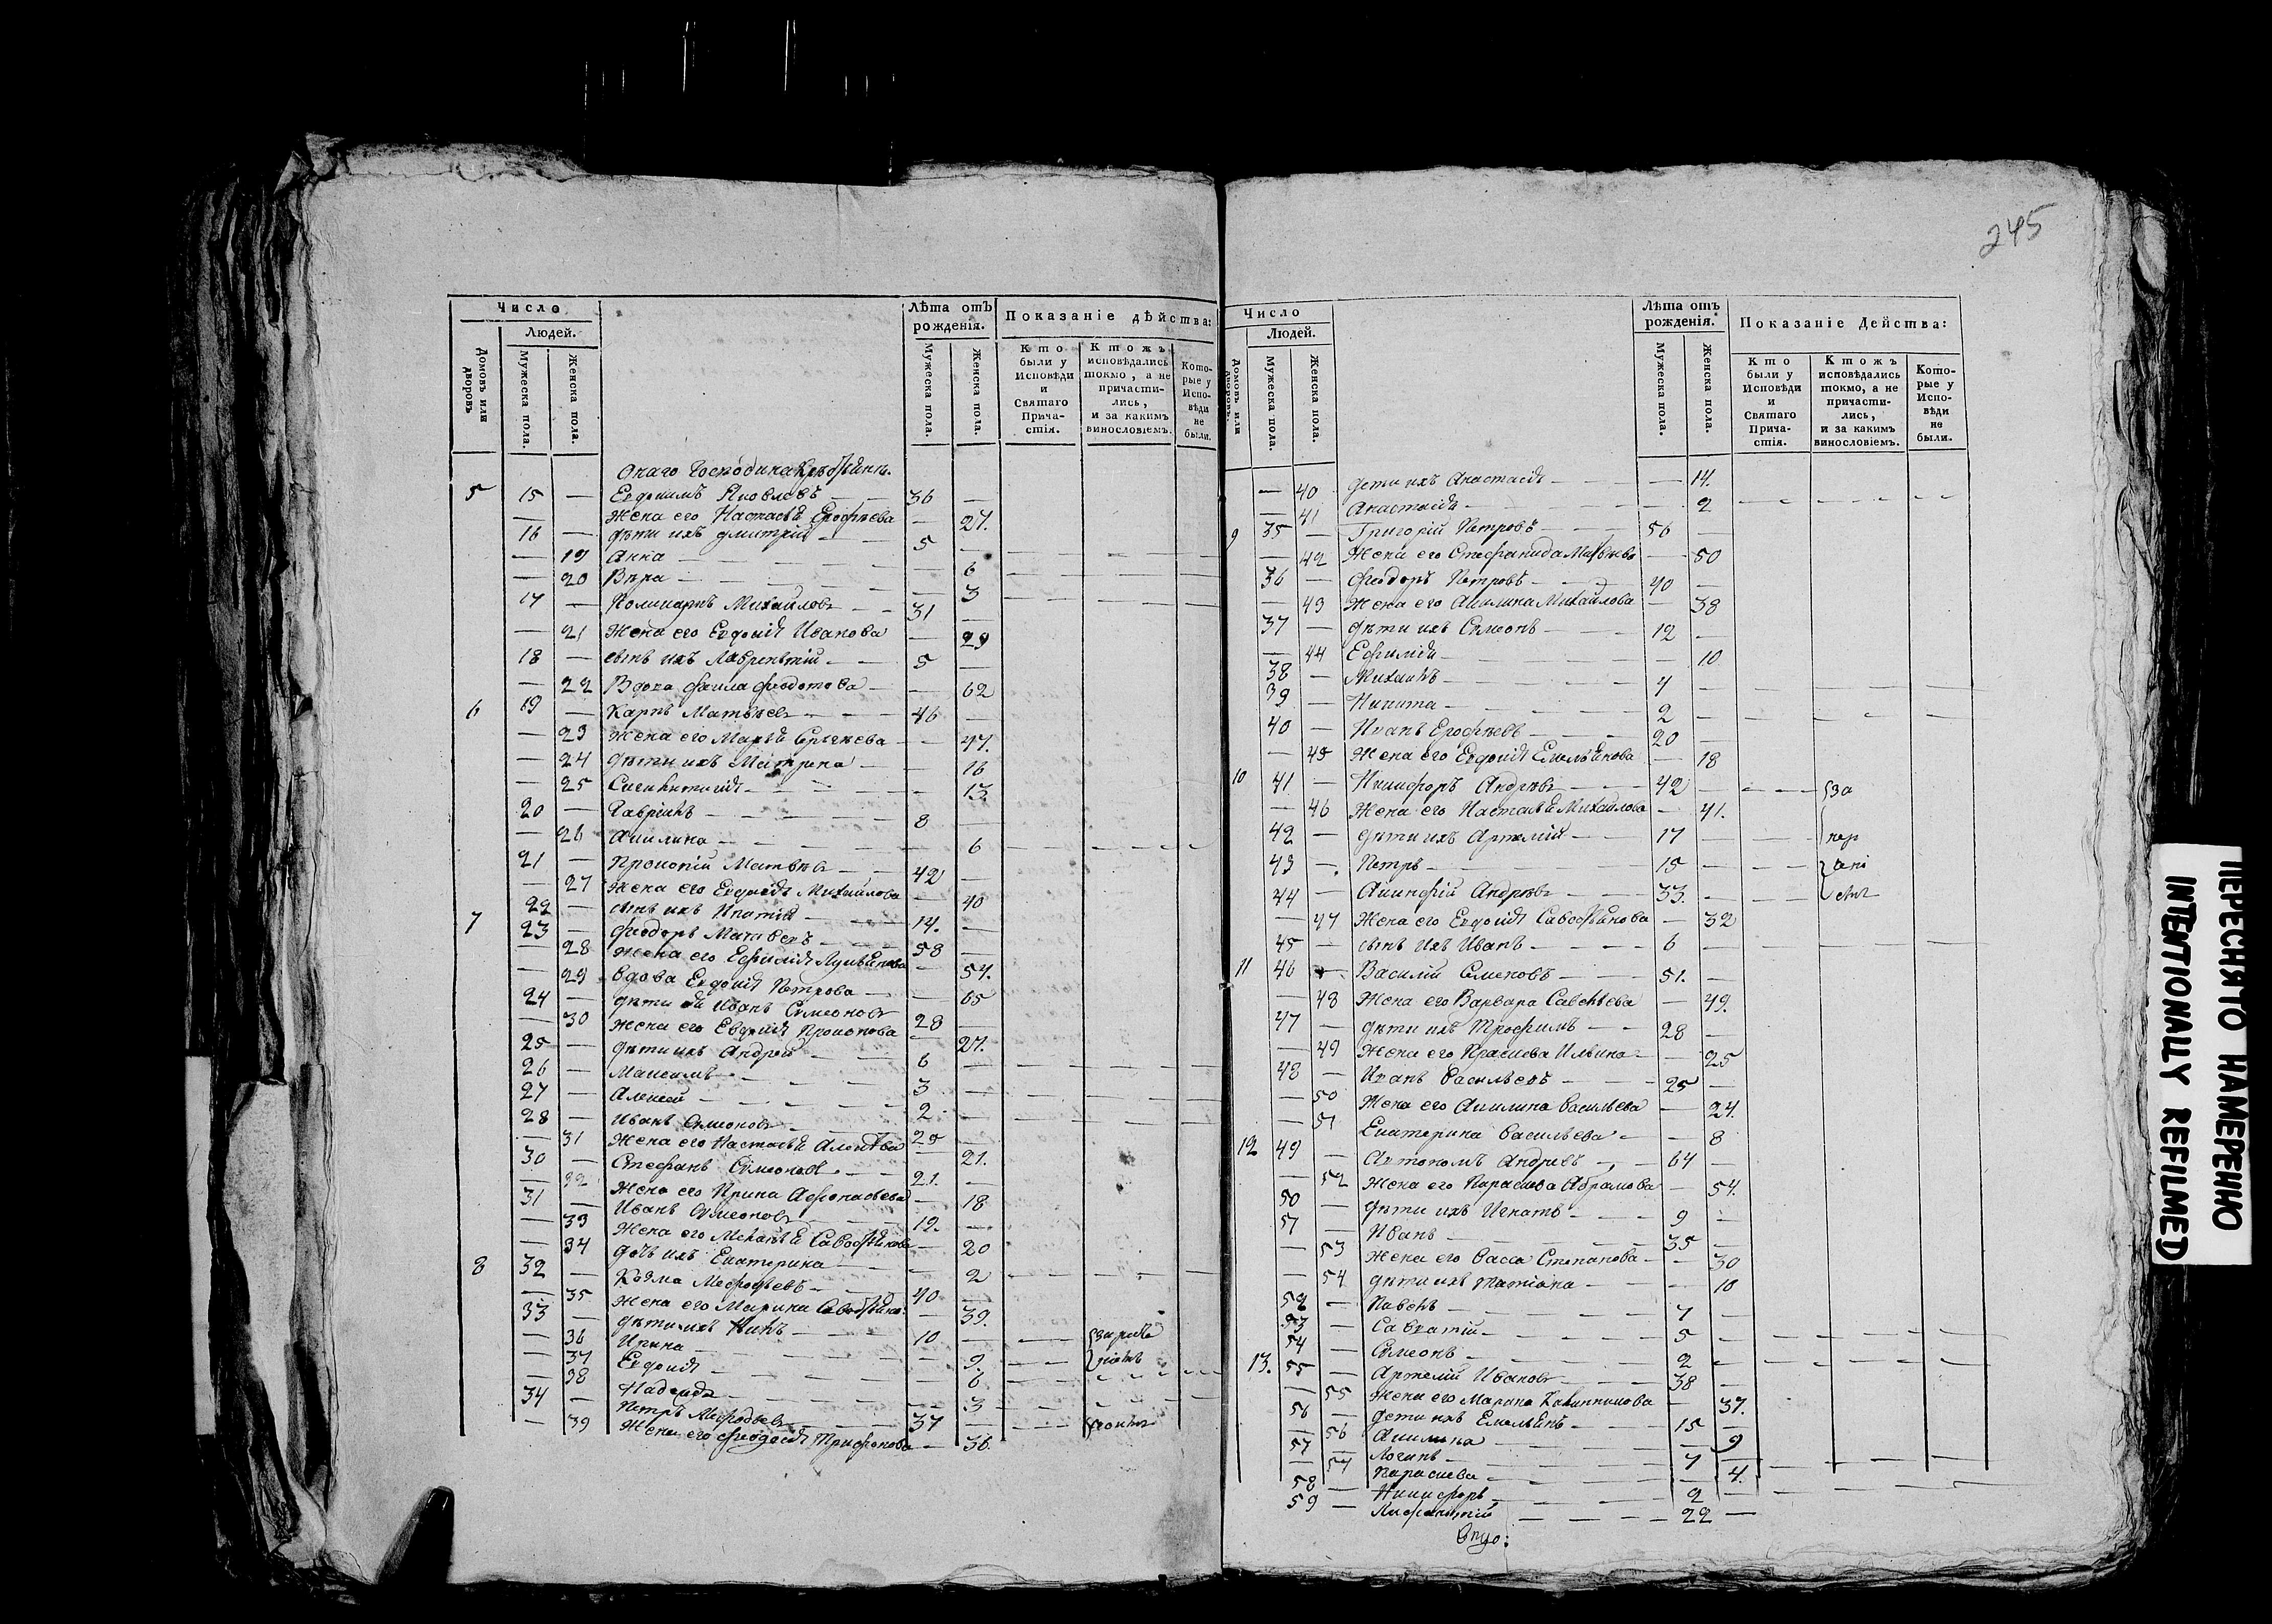 245
Число
Людей.
Домовъ или дворовъ
Мужеска пола.
Женска пола.
Лѣта отъ рожденія.
Мужеска пола.
Женска пола.
Показаніе дѣйства:
Кто были у Исповѣди и Святаго Причастія.
Ктожъ исповѣдались токмо, а не причастились, и за какимъ винословіемъ.
Которые у Исповѣди не были.
Онаго Господина
5 15 — Евдокимъ Яковлевъ — — 36 —
— Жена его Настасья Ерофѣева — 27.
16 — дѣти ихъ Дмитрий — 5 —
— 19 Анна — — 6
— 20 Вѣра — — 3
17 — Поликарпъ Михайловъ — — 31 —
— 21 Жена его Евдокія Иванова — 29
18 — сынъ ихъ Лаврентій — — 5 —
— 22 Вдова Фекла Федотова — — 62
6 19 — Карпъ Матвѣевъ — — 46 —
— 23 Жена его Марья Сергѣева — — 47.
— 24 дѣти ихъ Матрена — — 16
— 25 — — 13.
20 — Гавріилъ — — 8 —
— 26 Акилина — — 6
21 — Прокопій Матвѣевъ — 42 —
— 27 Жена его Евдокія Михайлова — 40
22 — сынъ ихъ Игнатій — 14. —
7 23 — Феодоръ Матвѣевъ — 58 —
— 28 Жена его Ефимія — 54.
— 29 вдова Евдокія Петрова — — 65
24 — дѣти ей Иванъ Симеоновъ 28 —
— 30 Жена его Евдокія Прокопова — 27.
25 — дѣти ихъ Андрей — 6 —
26 — Максимъ — 3 —
27 — Алексей — 2 —
28 — Иванъ Симеоновъ — 25 —
— 31 Жена его Настасья — 21.
30 — Стефанъ Симеоновъ — 21. —
— 32 Жена его Ирина Афонасьева — 18
31 — Иванъ Симеоновъ — 19. —
— 33 Жена его Меланья — 20
— 34 дочь ихъ Екатерина — — 2
8 32 — Козма Мефодьевъ — 40 —
— 35 Жена его Марина — 39.
33 — дѣти ихъ — 10 —
— 36 Ирина — — 9.
— 37 Евдокія — — 6
— 38 Надежда — — 3
34 — Петръ Мефодьевъ — 37 —
— 39 Жена его Феодосія Трифонова — 36.
Число
Людей.
Домовъ или дворовъ.
Мужеска пола.
Женска пола.
Лѣта отъ рожденія.
Мужеска пола.
Женска пола.
Показаніе Действа:
Кто были у Исповѣди и Святаго Причастія.
Ктожъ исповѣдались токмо, а не причастились, и за какимъ винословіемъ.
Которые у Исповѣди не были.
— 40 дети ихъ Анастасія — — 14.
— 41 Анастасія — — 2
9 35 — Григорій Петровъ — 56 —
— 42 Жена его Стефанида — 50
36 — Феодоръ Петровъ — 40 —
— 43 Жена его Акилина Михайлова — 38
37 — дѣти ихъ Симеонъ — 12 —
— 44 Ефимія — — 10
38 — Михаилъ — 4 —
39 — Никита — 2 —
40 — Иванъ Ерофѣевъ — 20 —
— 45 Жена его Евдокія Емельянова — 18
10 41 — Никифоръ Андреевъ — 42 — за
— 46 Жена его Настасья Михайлова — 41.
42 — дѣти ихъ Артемій — 17 —
43 — Петръ — 15 —
44 — Андреевъ — 33. —
— 47 Жена его Евдокія — 32
45 — сынъ ихъ Иванъ — 6 —
11 46 — Василій Семеновъ — 51. —
— 48 Жена его Варвара Савельева — 49.
47 — дѣти ихъ Трофимъ — 28 —
— 49 Жена его Праскева Ильина — 25
48 — Иванъ Васильевъ — 25 —
— 50 Жена его Акилина Васильева — 24.
— 51 Екатерина Васильева — — 8
12 49 — Автономъ Андреевъ — 64 —
— 52 Жена его Параскева Абрамова — 54.
50 — дѣти ихъ Игнатъ — 9 —
51 — Иванъ — 35 —
— 53 Жена его Васса Степанова — — 30
— 54 дѣти ихъ Татіана — — 10
52 — Павелъ — 7 —
53 — Савватій — 5 —
54 — Симеонъ — 2 —
13. 55 — Артемій Ивановъ — 38 —
— 55 Жена его Марина — 37.
56 — дети ихъ Емельянъ — 15 —
— 56 Акилина — — 9
57 — Логинъ — 7 —
— 57 Параскева — — 4.
58 — Никифоръ — 2 —
59 — — 22 —
ПЕРЕСНЯТО НАМЕРЕННО
INTENTIONALLY REFILMED